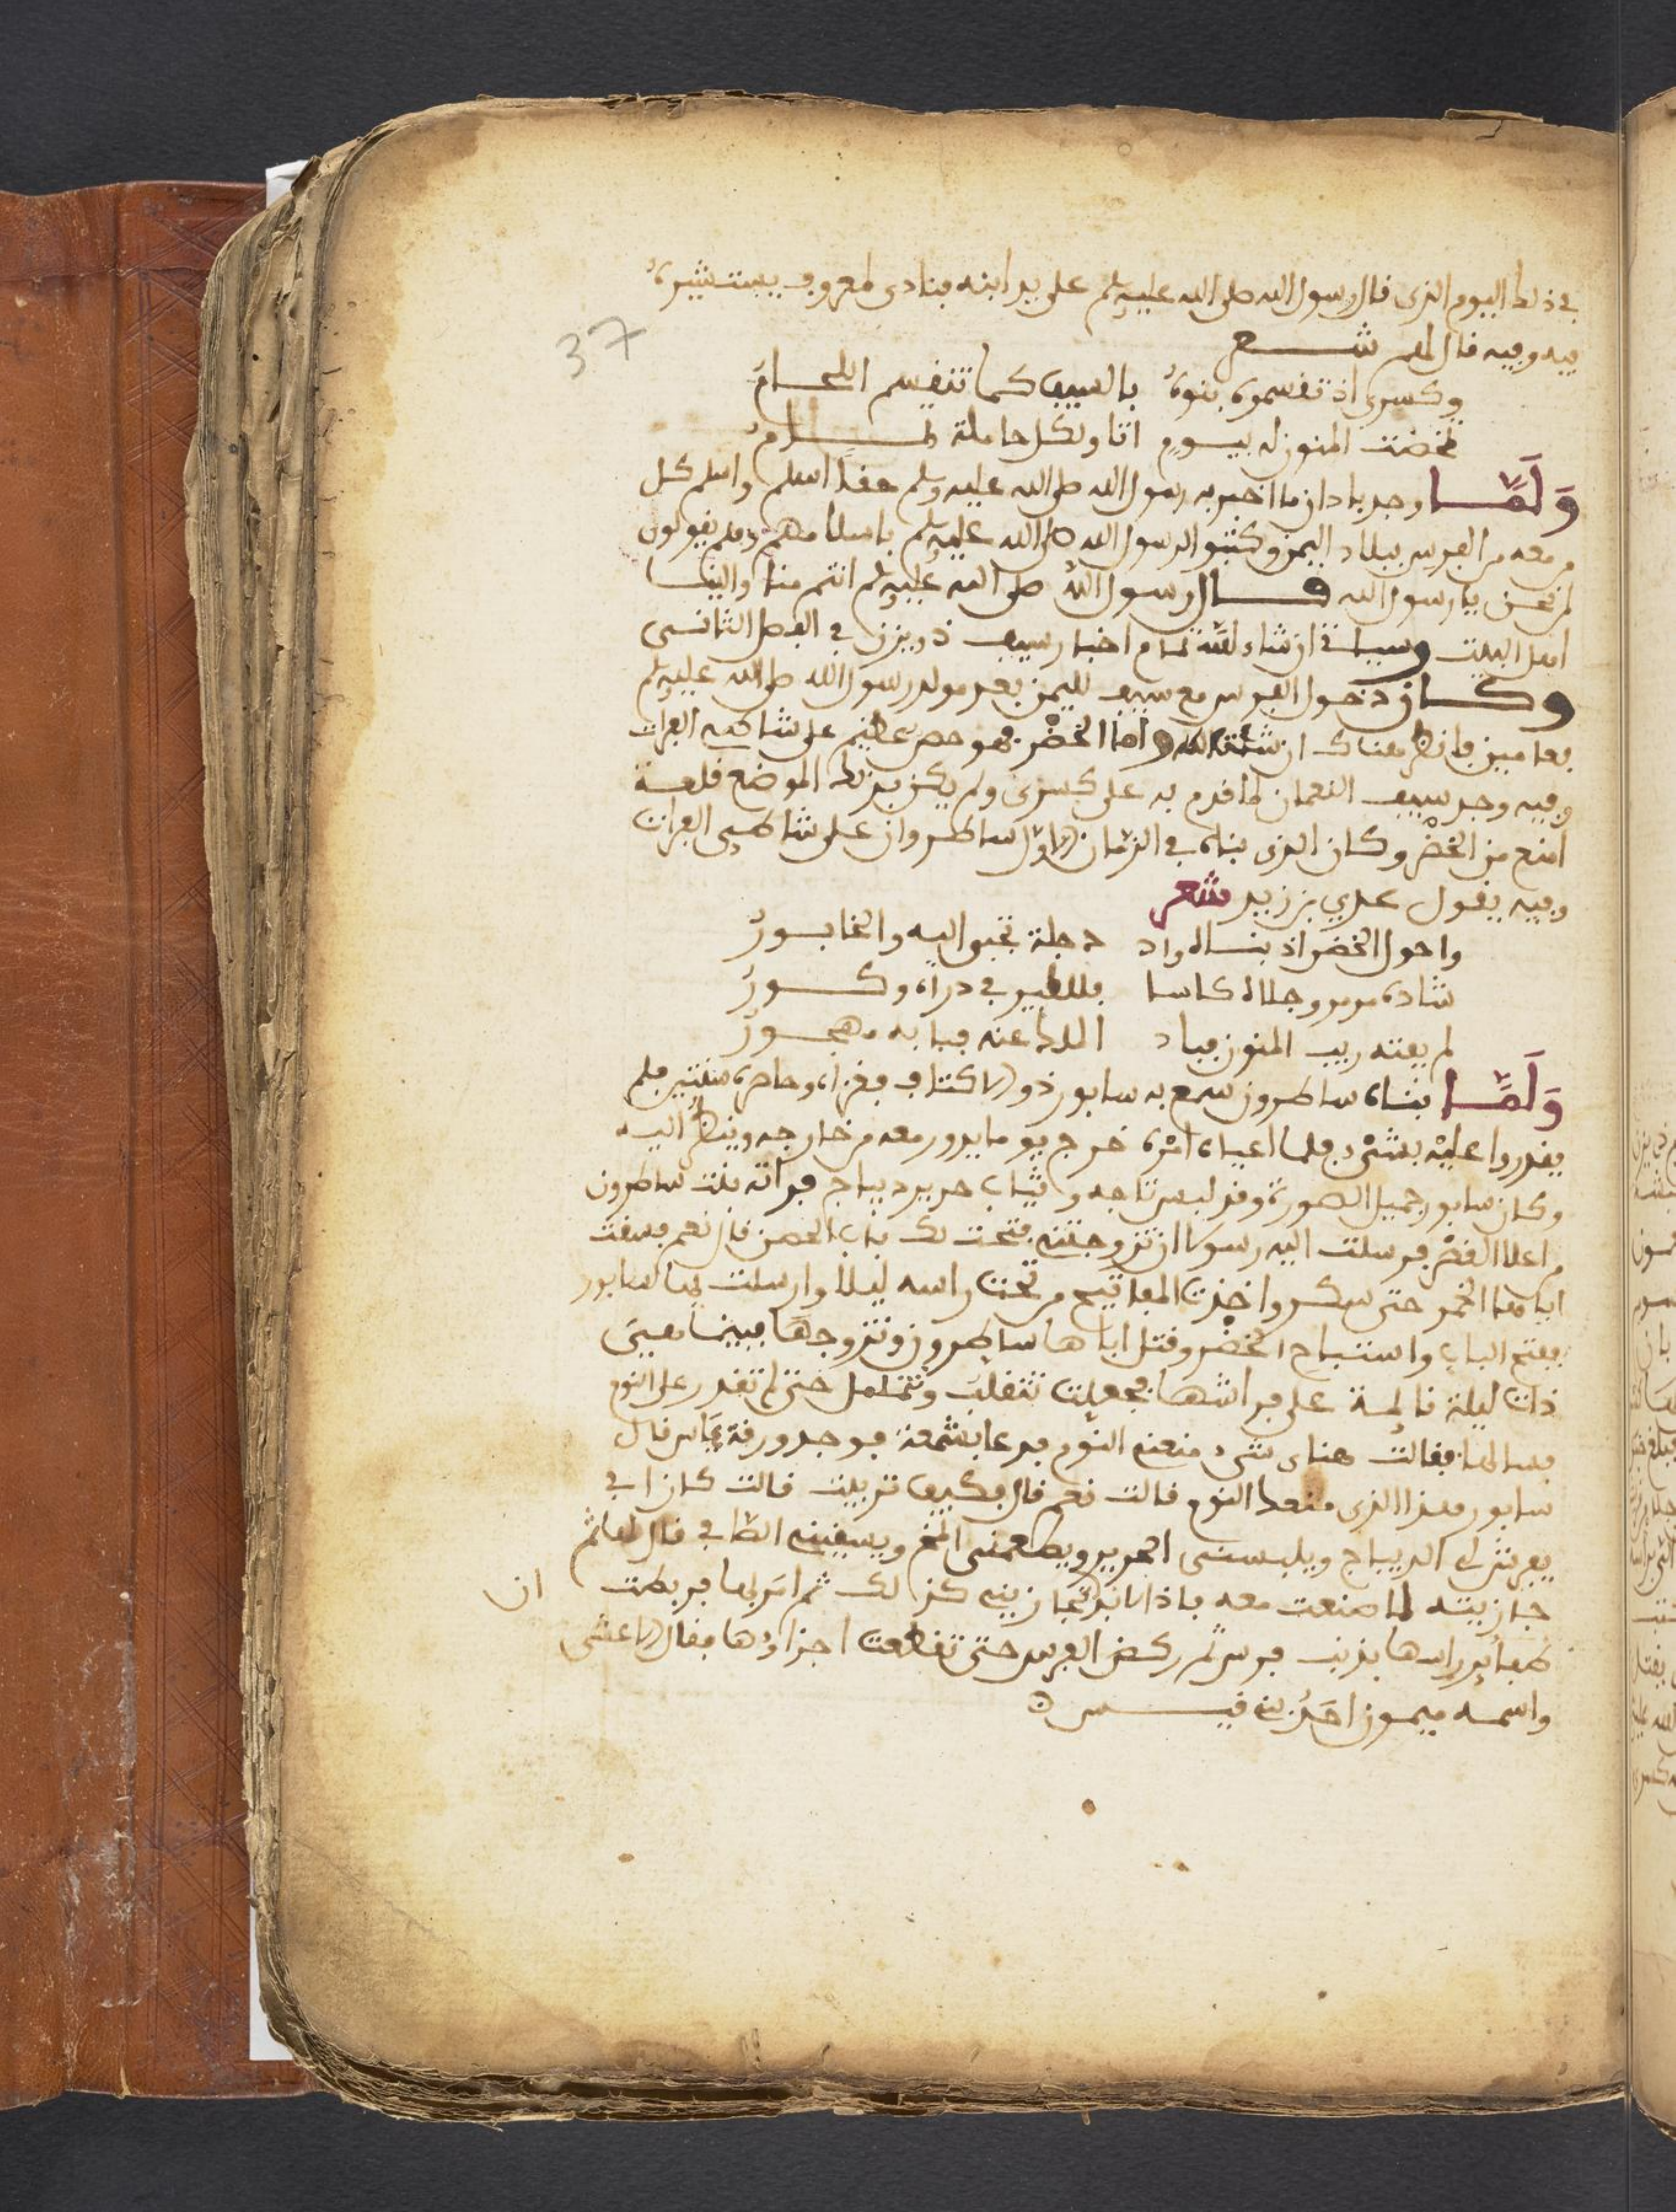 في ذلك اليوم الذي قال رسول الله صلى الله عليه وسلم على يد ابنه
فيه وفيه قال لهم شعر
37
وكسرى اذ تقسموه بنوه بالسيف كما تقسم اللحام
تمخضت المنون له بيوم انا ولكل حاملة تمام
وَلَمَّا وجد باذان ما اخبر به رسول الله صلى الله عليه وسلم حقا اسلم واسلم كل
من معه من الفرس ببلاد اليمن وكتبوا لرسول الله صلى الله عليه وسلم باسلامهم وهم يقولون
لمن نحن يا رسول الله قال رسول الله صلى الله عليه وسلم انتم منا والينا
اهل البيت وسياتي ان شاء الله تمام اخبار سيف ذي يزن في الفصل الثاني
وكان دخول الفرس مع سيف لليمن بعد مولد رسول الله صلى الله عليه وسلم
بعامين فانظر هناك ان شئت الله واما الخضر فهو حصن عظيم على شاطئ الفرات
وفيه وجد سيف النعمان لما قدم به على كسرى ولم يكن بذلك الموضع قلعة
امنع من الخضر وكان الذي بناه في الزمان الاول ساطروان على شاطئ الفرات
وفيه يقول عدي بن زيد شعر
واخو الخضر اذ بناه واذ دجلة تجبى اليه والخابور
شاده مرمر وجلله كاسا فللطير في دراه وكور
لم يهبه ريب المنون فباد الملك عنه فبابه مهجور
وَلَمَّا بناه ساطرون سمع به سابور ذو الاكتاف فغزاه وحاصره سنتين فلم
يقدروا عليه بشيء فلما اعياه امره خرج يوما يدور معه من خارجه وينظر اليه
وكان سابور جميل الصورة وقد لبس تاجه وثياب حرير ديباج فراته بنت ساطرون
من اعلا القصر فرسلت اليه رسولا ان تزوجتني فتحت لك باب الحصن قال نعم فسقت
اباها الخمر حتى سكر واخذت المفاتيح من تحت راسه ليلا وارسلت بها لسابور
ففتح الباب واستباح الخضر وقتل اباها ساطرون وتزوجها فبينما هي
ذات ليلة نائمة على فراشها فجعلت تتقلب وتتململ حتى لم تقدر على النوم
فسالها فقالت هناى شيء منعني النوم فدعا بشمعة فوجد ورقة ءاس قال
سابور هذا الذي منعك النوم قالت نعم قال فكيف تربيت قالت كان ابي
يفرش لي الديباج ويلبسني الحرير ويطعمني المخ ويسقيني الصافي قال لها
جازيته لما صنعت معه باذاية تجازيني كذلك ثم امر بها فربطت ان
ظفاير راسها بذنب فرس ثم ركض الفرس حتى تقطعت اجزاؤها فقال الاعشى
واسمه ميمون احد بني قيس